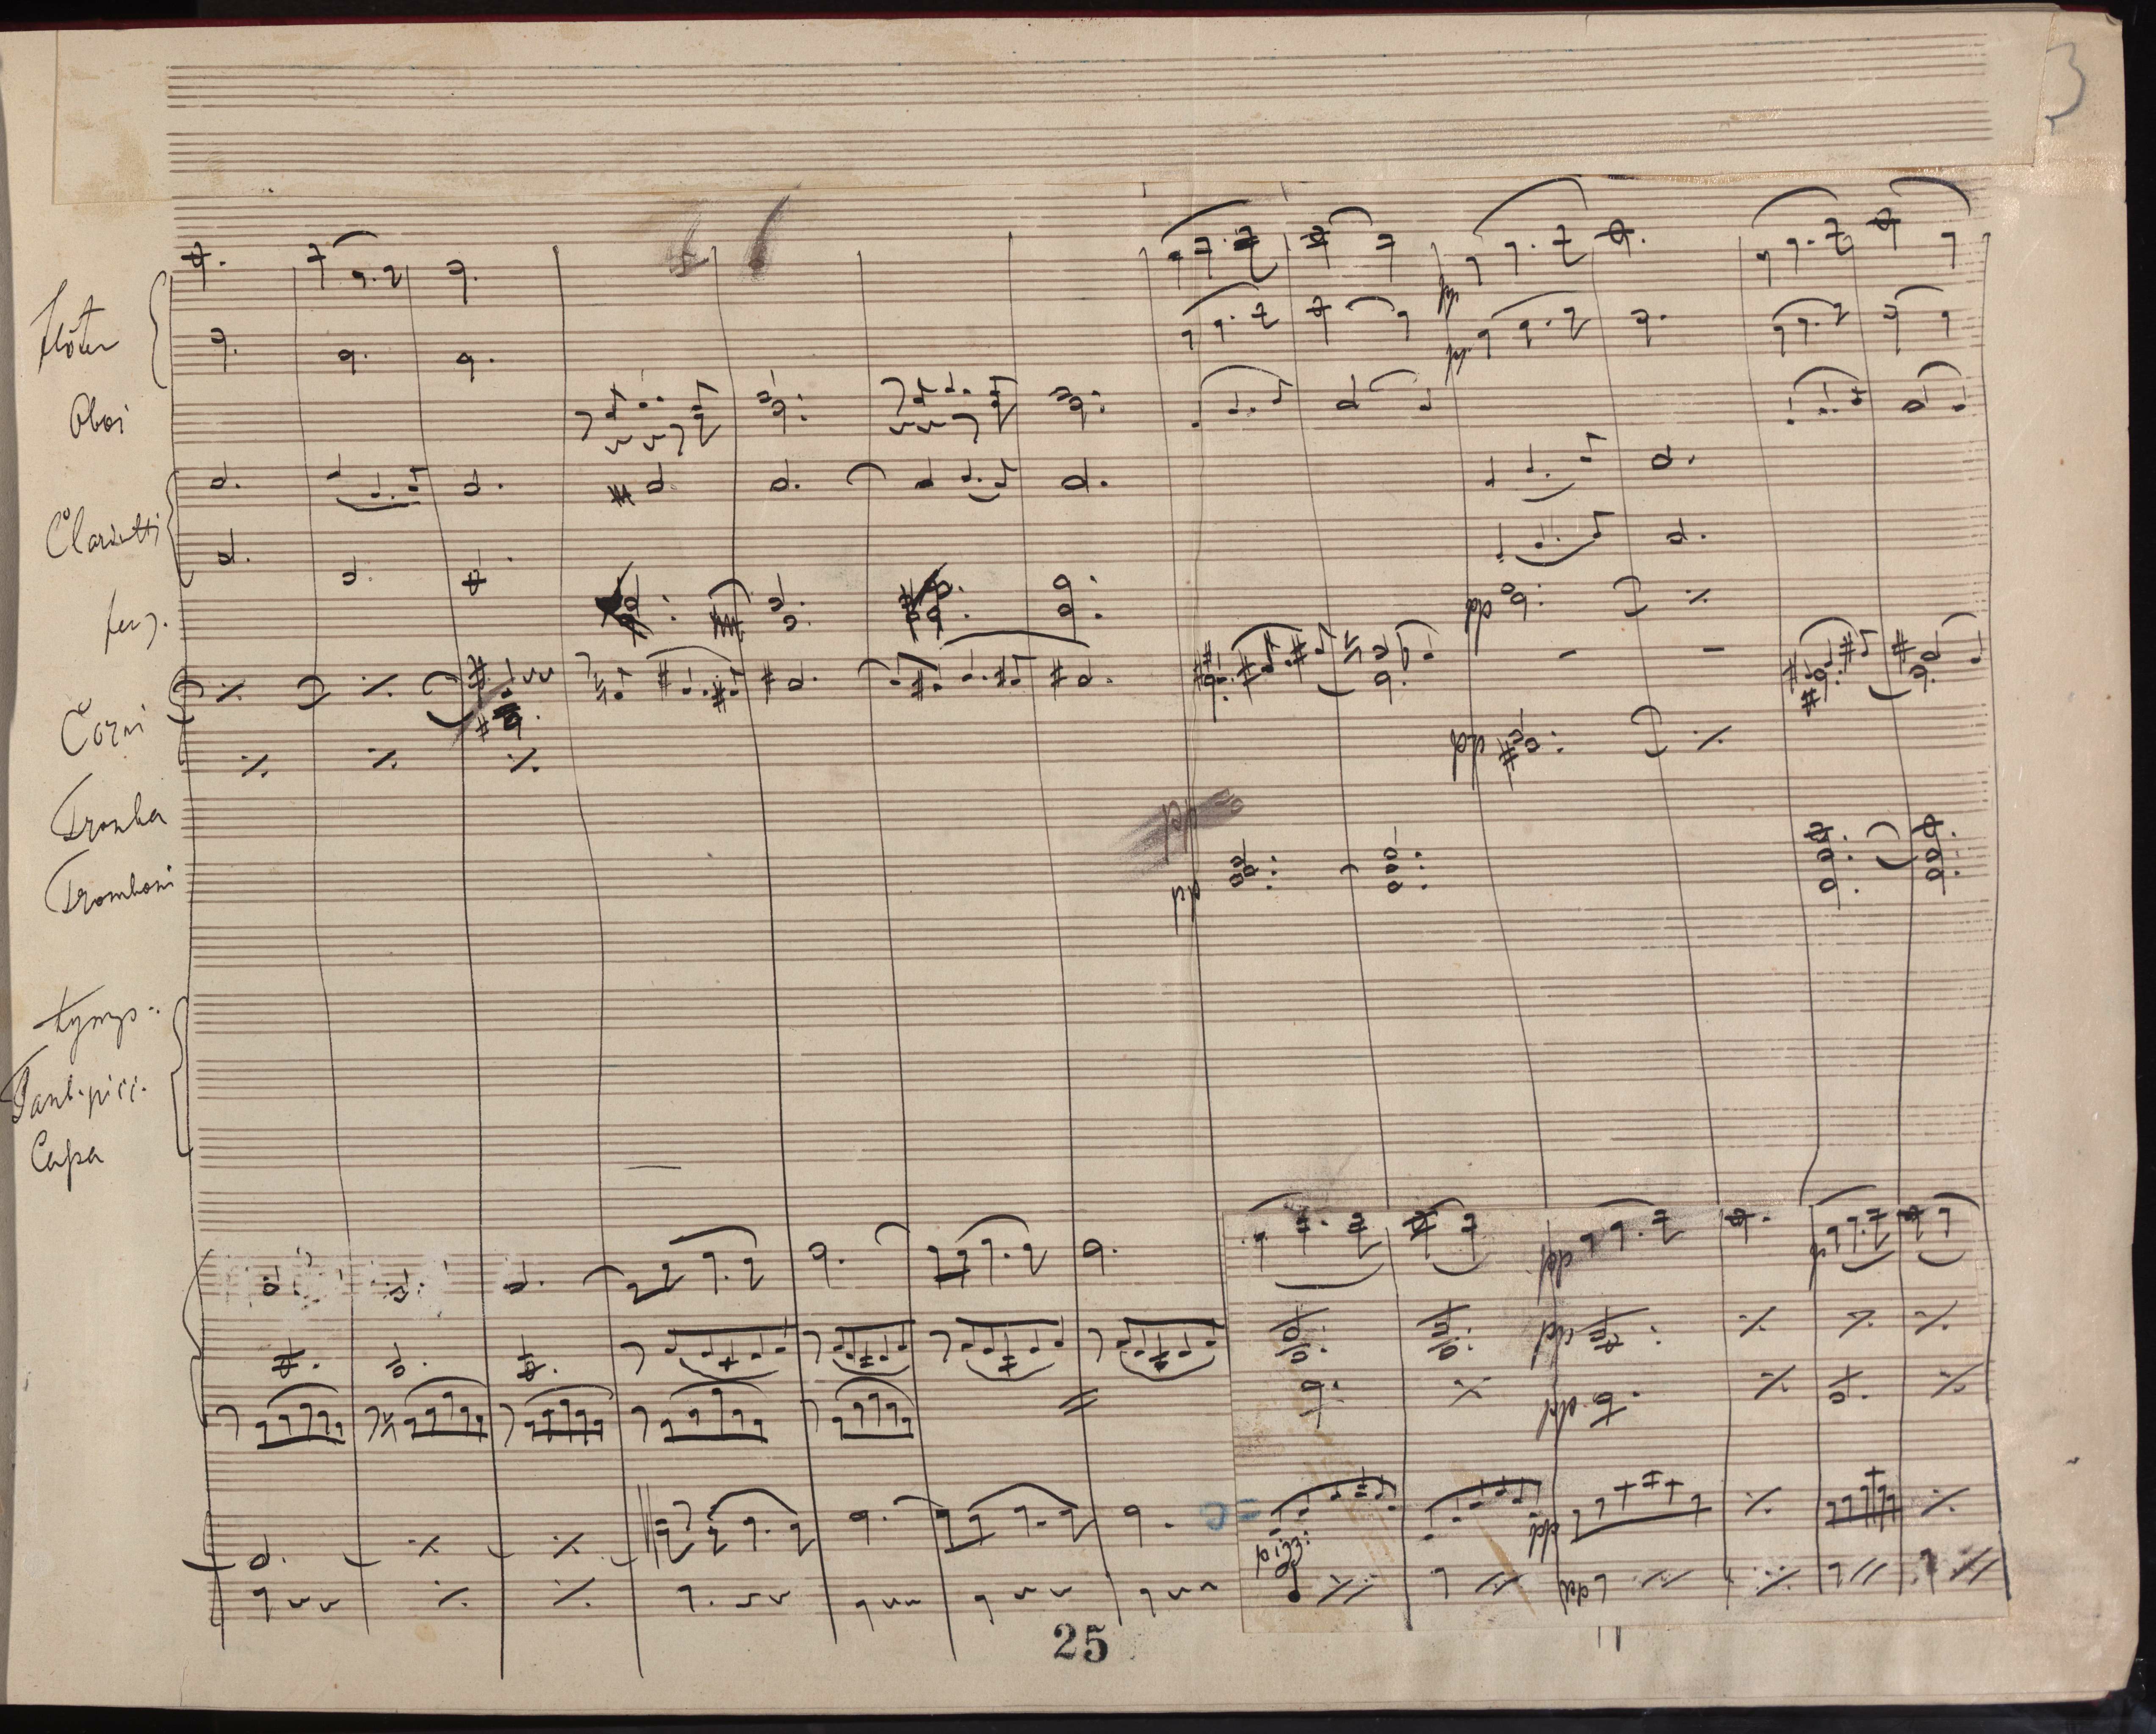 3
Flöten
Oboi
Clarinetti
fag.
Corni
Tromba
Tromboni
tymp.
Tamb. picc.
Capa
pp
pp
pp
pp
pp
pp
ppp
p
pp
ppp
pizz.
pp
ppp
25